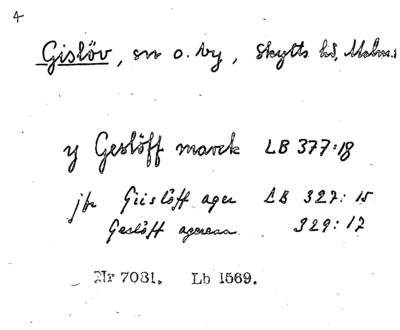 4
Gislöv, sn o. by, Skytts hd, Malm.
y Geslöff marck LB 377:18
jfr Giislöff ager LB 327:15
Geslöff agerenn 329:17
Nr 7031. Lb 1569.